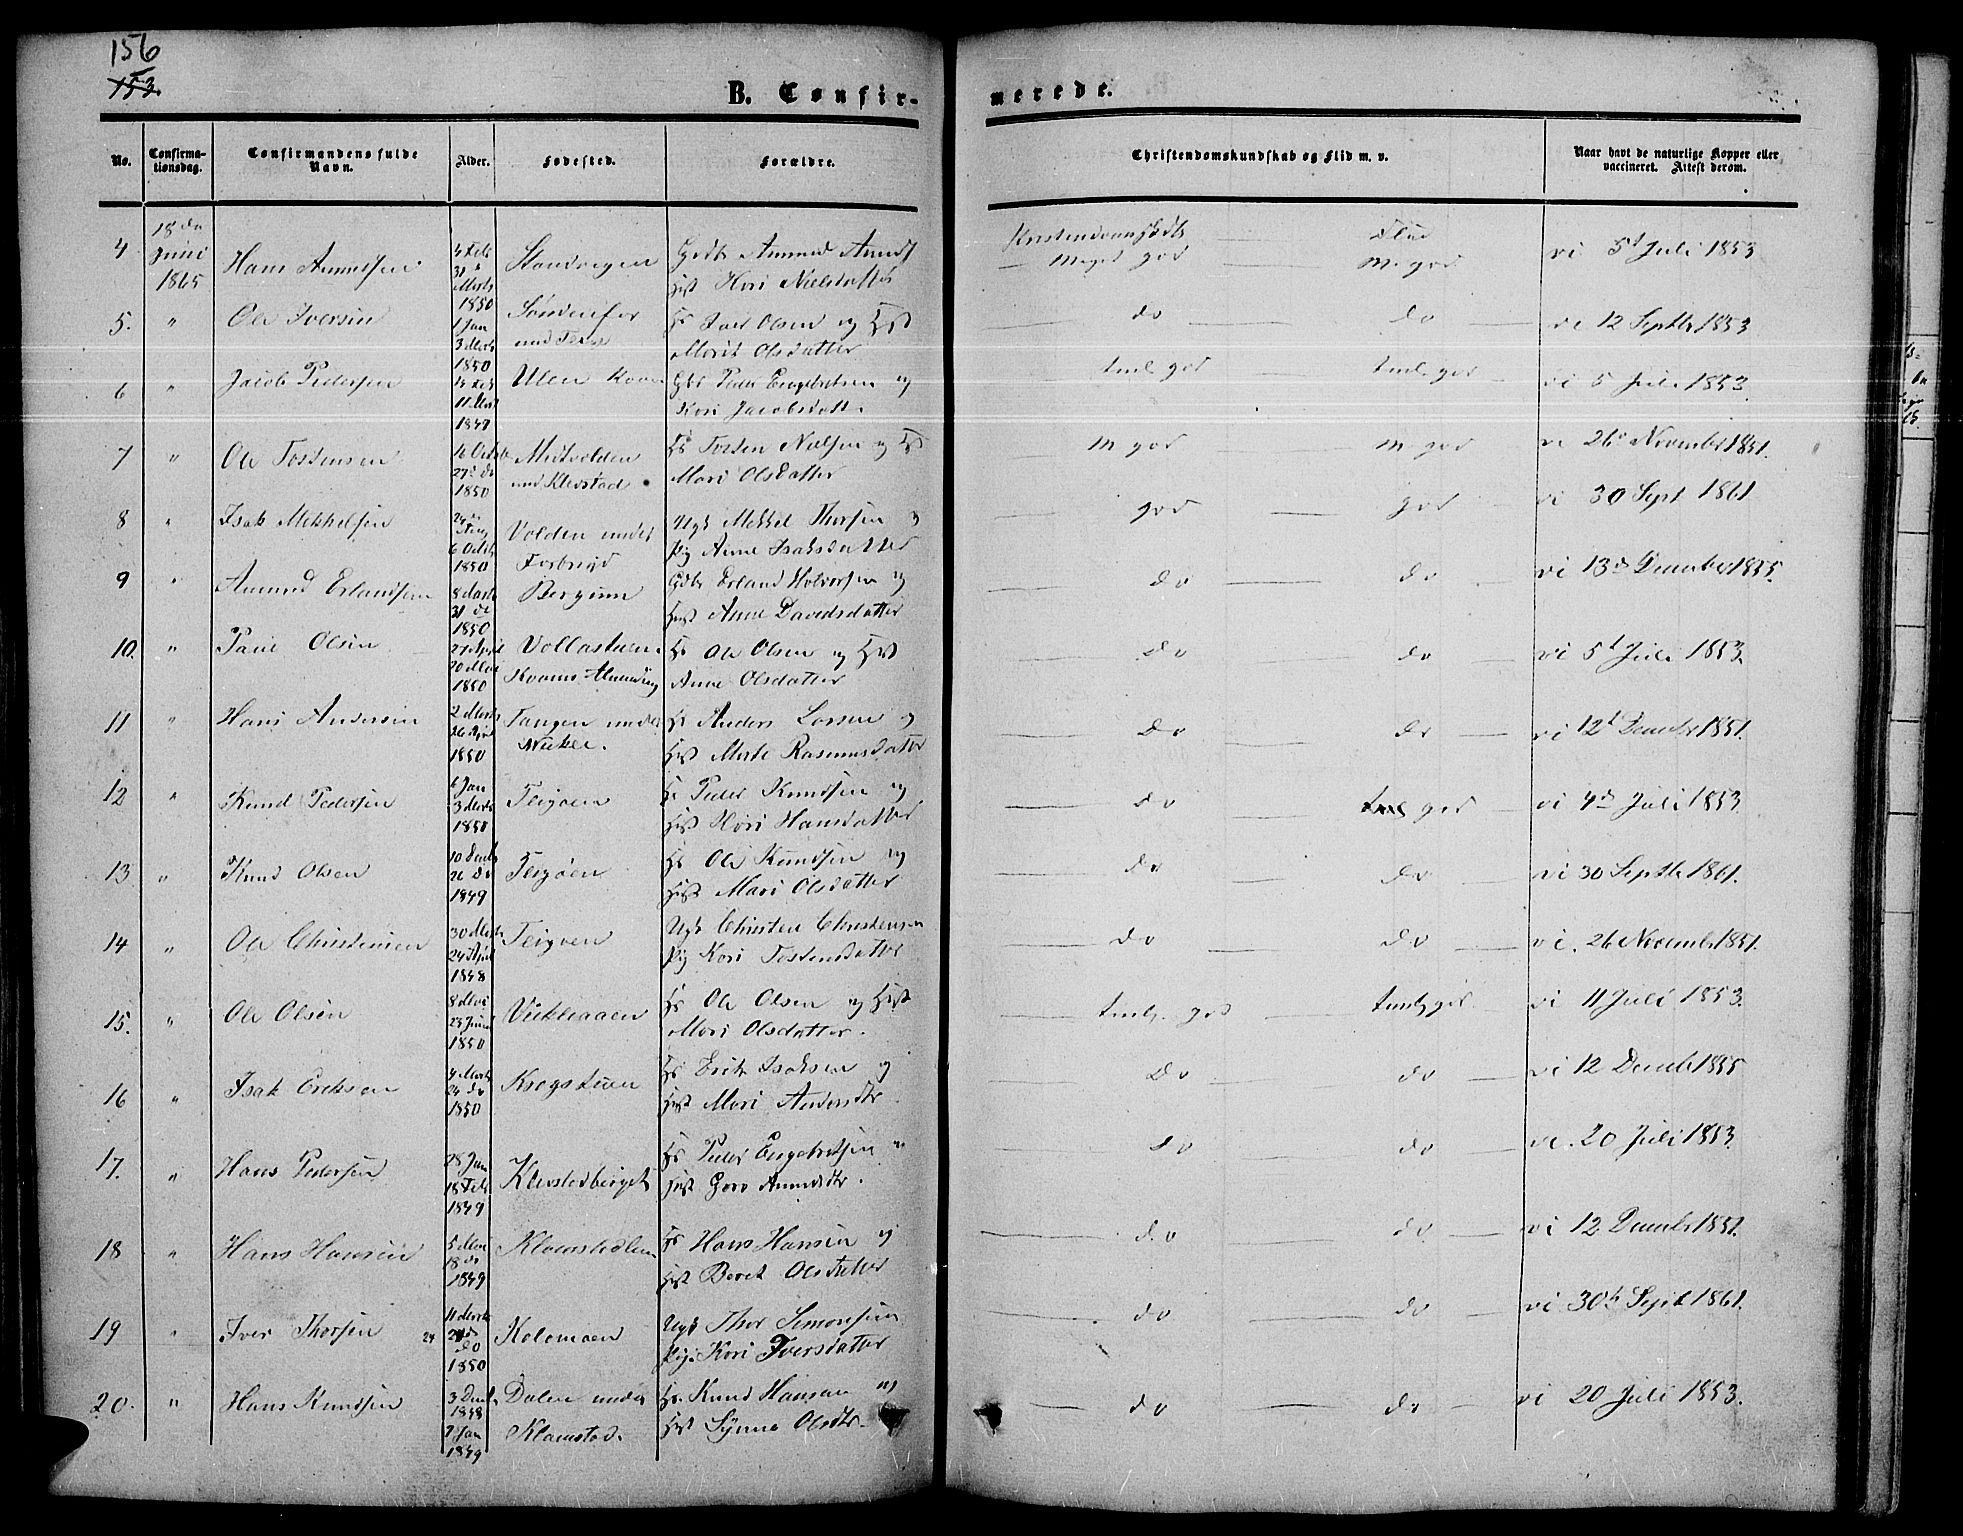 156
153.
B. Confir-
merede.
No.
Confirma-
tionsdag.
Confirmandens fulde
Navn.
Alder.
Fødested.
Forældre.
Christendomskundskab og Flid m. v.
Naar havt de naturlige Kopper eller
vaccineret. Attest derom.
4 18de Juni 1865 Hans Amundsen 4 Feb 31 Marts 1850 Gdbr Amund Kari Nielsdatter Meget god M. god vi 5t Juli 1853
5. " Ole Iversen 1 Jan 3 Marts 1850 Iver Olsen og Marit Olsdatter do do vi 12 Septbr 1853
6 " Jacob Pedersen 4 Feb 1850 Ulen Peder Engebretsen og Kari Jacobsdatt. tml. god tml. god vi 5 Juli 1853.
7 " Ole Tostensen 16 Octob 27d do 1849 Midtvolden und Klevstad Torsten Nielsen og Mari Olsdatter M god M god vi 26d Novembr 1851.
8 " Isak Mekkelsen 1850 Volden under Ugk Mekkel Thorsen Pig Anne Isaksdatter god god vi 30 Sept 1861
9 " Amund Erlandsen 8 Marts 31 do 1850 Gdbr Erland Halvorsen og Anne Davidsdatter do do vi 13d December 1855.
10. " Paul Olsen 27 April 20 Mai 1850 Vollastuen. Kvams Almening Ole Olsen og Anne Olsdatter do do vi 5t Juli 1853.
11 " Hans Andersen 2 Marts 26 April 1850 Tangen under Anders Larsen og Marte Rasmusdatter do do vi 12t Decembr 1851.
12 " Knud Pedersen 6 Jan 3 Marts 1850 Teigøen Peder Knudsen og Kari Hansdatter do tml god vi 4d Juli 1853
13 " Knud Olsen 10 Decb 26 do 1849 Teigøen Ole Knudsen og Mari Olsdatter do do vi 30 Septbr 1861.
14 " Ole Christensen 30 Marts 24 April 1848 Teigøen Ugk Christen Christensen Pig Kari Tostensdatter do do vi. 26 Novembr 1851.
15. " Ole Olsen 8 Mai 23 Juni 1850 Ole Olsen og Mari Olsdatter. tml. god tml. god vi 11 Juli 1853.
16 " Isak Eriksen 4 Marts 24 do 1850 Krogstuen Erik Isaksen og Mari Andersdtr do do vi 12 Decembr 1855
17. " Hans Pedersen 28 Jan 18 Feb 1849 Klevstadberget Peder Engebretsen Goro Amundsdtr. do do vi. 20 Juli 1853
18 " Hans Hansen 5 Mai 18 do 1849 Hans Hansen og Beret Olsdatter do do vi 12 Decembr 1851.
19 " Iver Thorsen 24 11 Marts do 1850 Kolomoen Ugk Thor Simonsen Pig. Kari Iversdatter do do vi 30t Sept 1861.
20. " Hans Knudsen 3 Decb 1848 7 Jan 1849 Dalen under Klomstad. Knud Hansen og Synne Olsdtr. do do vi 20 Juli 1853.